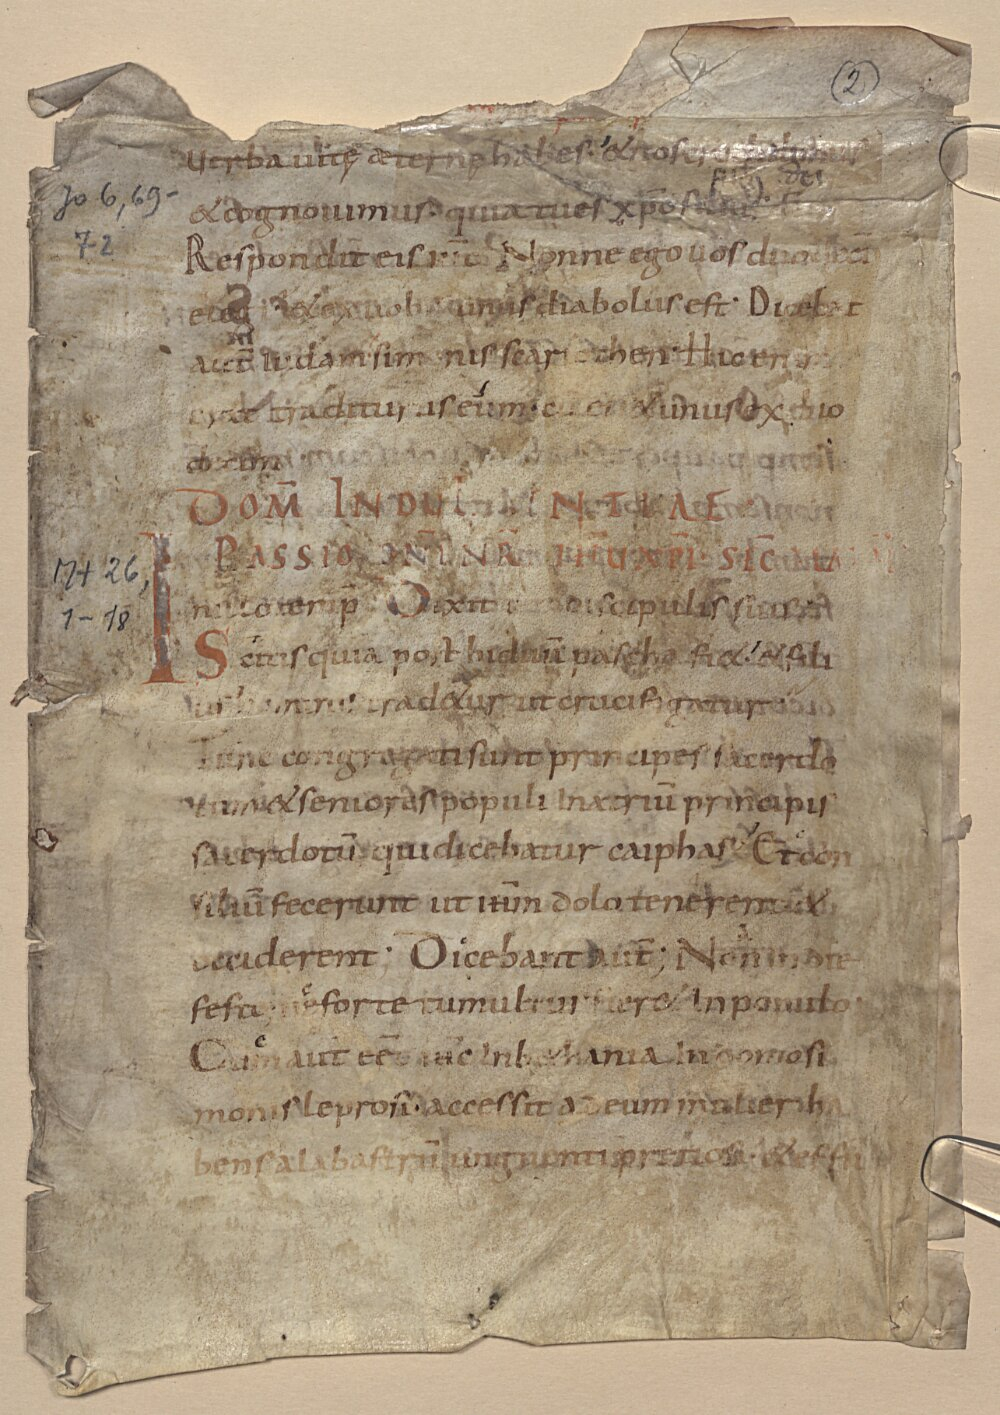 2
uerba uitę aeternę habes· & nos
Jo 6, 69-
72
filius dei
& cognouimus· quia tu es xp̄s
Respondit eis ih̄s Nonne ego uos duodeci
elegi & ex uobis unus diabolus est· Dicebat
autē iudam simonis scariothen· Hic enim
erat traditurus eum· cum &unus ex duo
decim
DOM̄ INDULGENTIAE
PASSIO DN̄I NR̄I IH̄U XP̄I SEC̄
Mt 26,
1-18
In illo temp̄ Dixit ih̄s discipulis suis
Scitis quia post biduū pascha fi&· & fili
us hominis trad&ur ut crucifigatur
Tunc congregati sunt principes sacerdo
tum & seniores populi In atriū principis
sacerdotū· qui dicebatur caiphas· Et con
siliū fecerunt ut ih̄m dolo tenerent &
occiderent; Dicebant aūt; Non in die
festo; ne forte tumultus fier& In populo·
Cum aūt eēt ih̄c In b&hania In domo si
monis leprosi· accessit ad eum mulier ha
bens alabastrū unguenti pretiosi· & effu